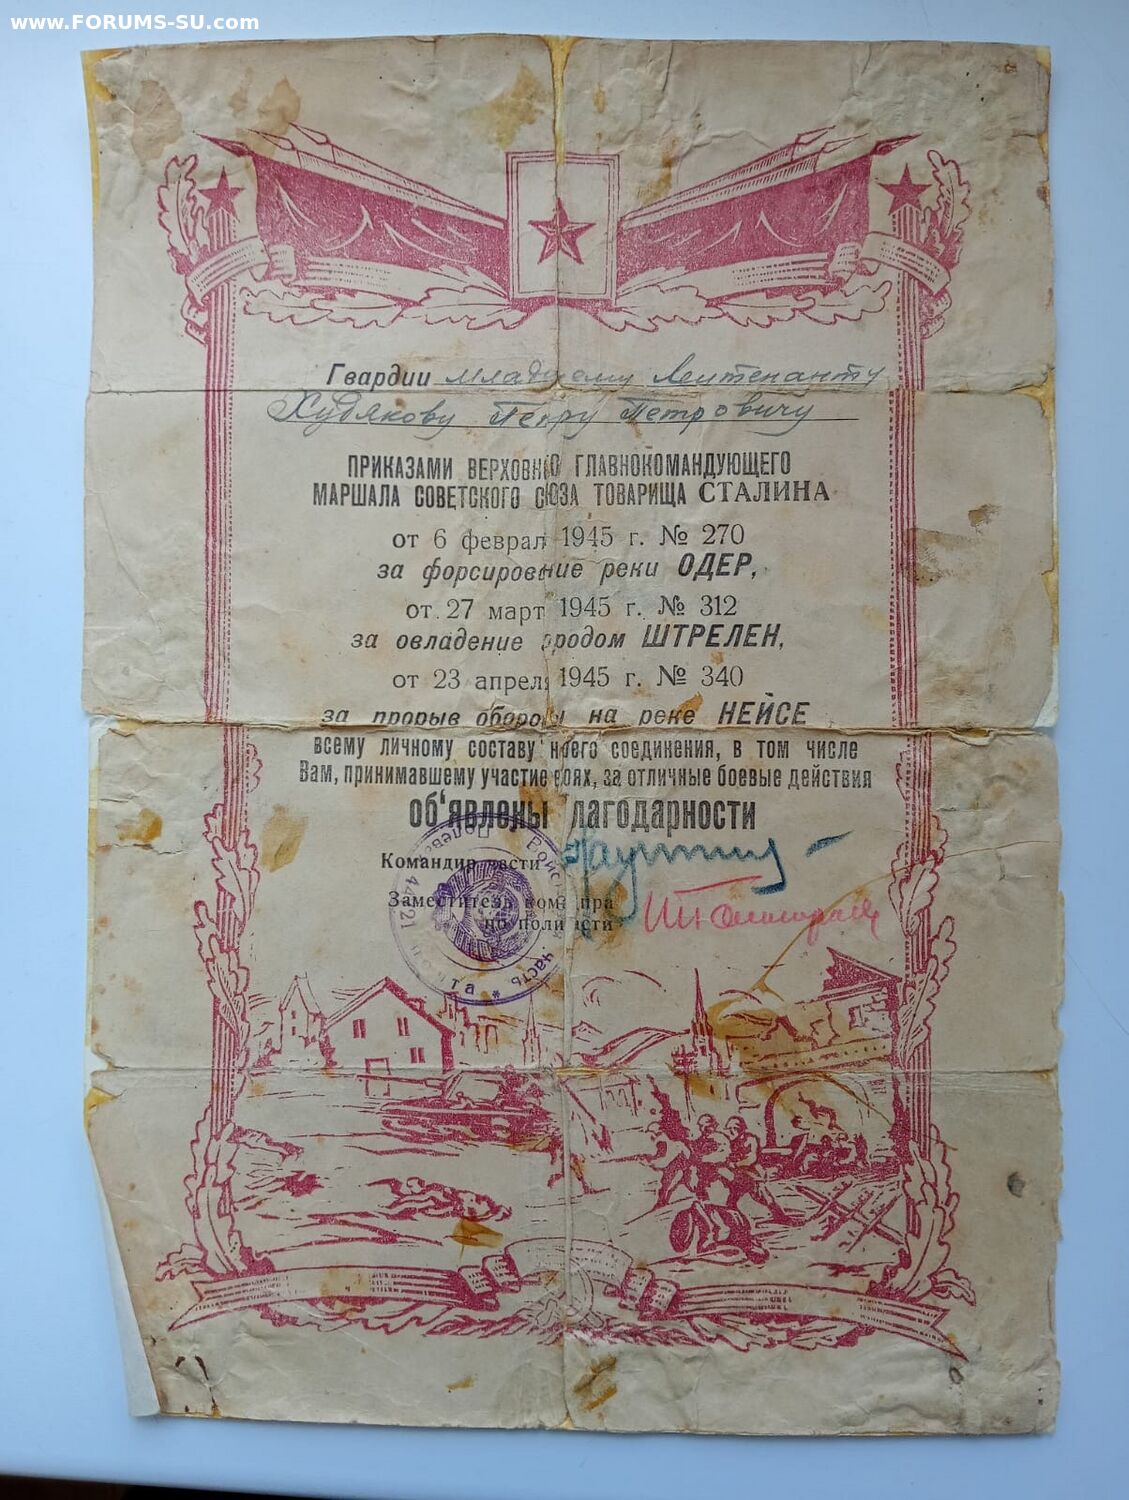 www.FORUMS-SU.com
Гвардии младшему Лейтенанту
Худякову Петру Петровичу
ПРИКАЗАМИ ВЕРХОВН О ГЛАВНОКОМАНДУЮЩЕГО
МАРШАЛА СОВЕТСКОГО СОЮЗА ТОВАРИЩА СТАЛИНА
от 6 феврал 1945 г. № 270
за форсирование реки ОДЕР,
от 27 март 1945 г. № 312
за овладение ородом ШТРЕЛЕН,
от 23 апреля 1945 г. № 340
за прорыв оборо ы на реке НЕЙСЕ
всему личному составу н его соединения, в том числе
Вам, принимавшему участие оях, за отличные боевые действия
об'явлены лагодарности
Командир части
Заместитель ком ра
по пол части
часть